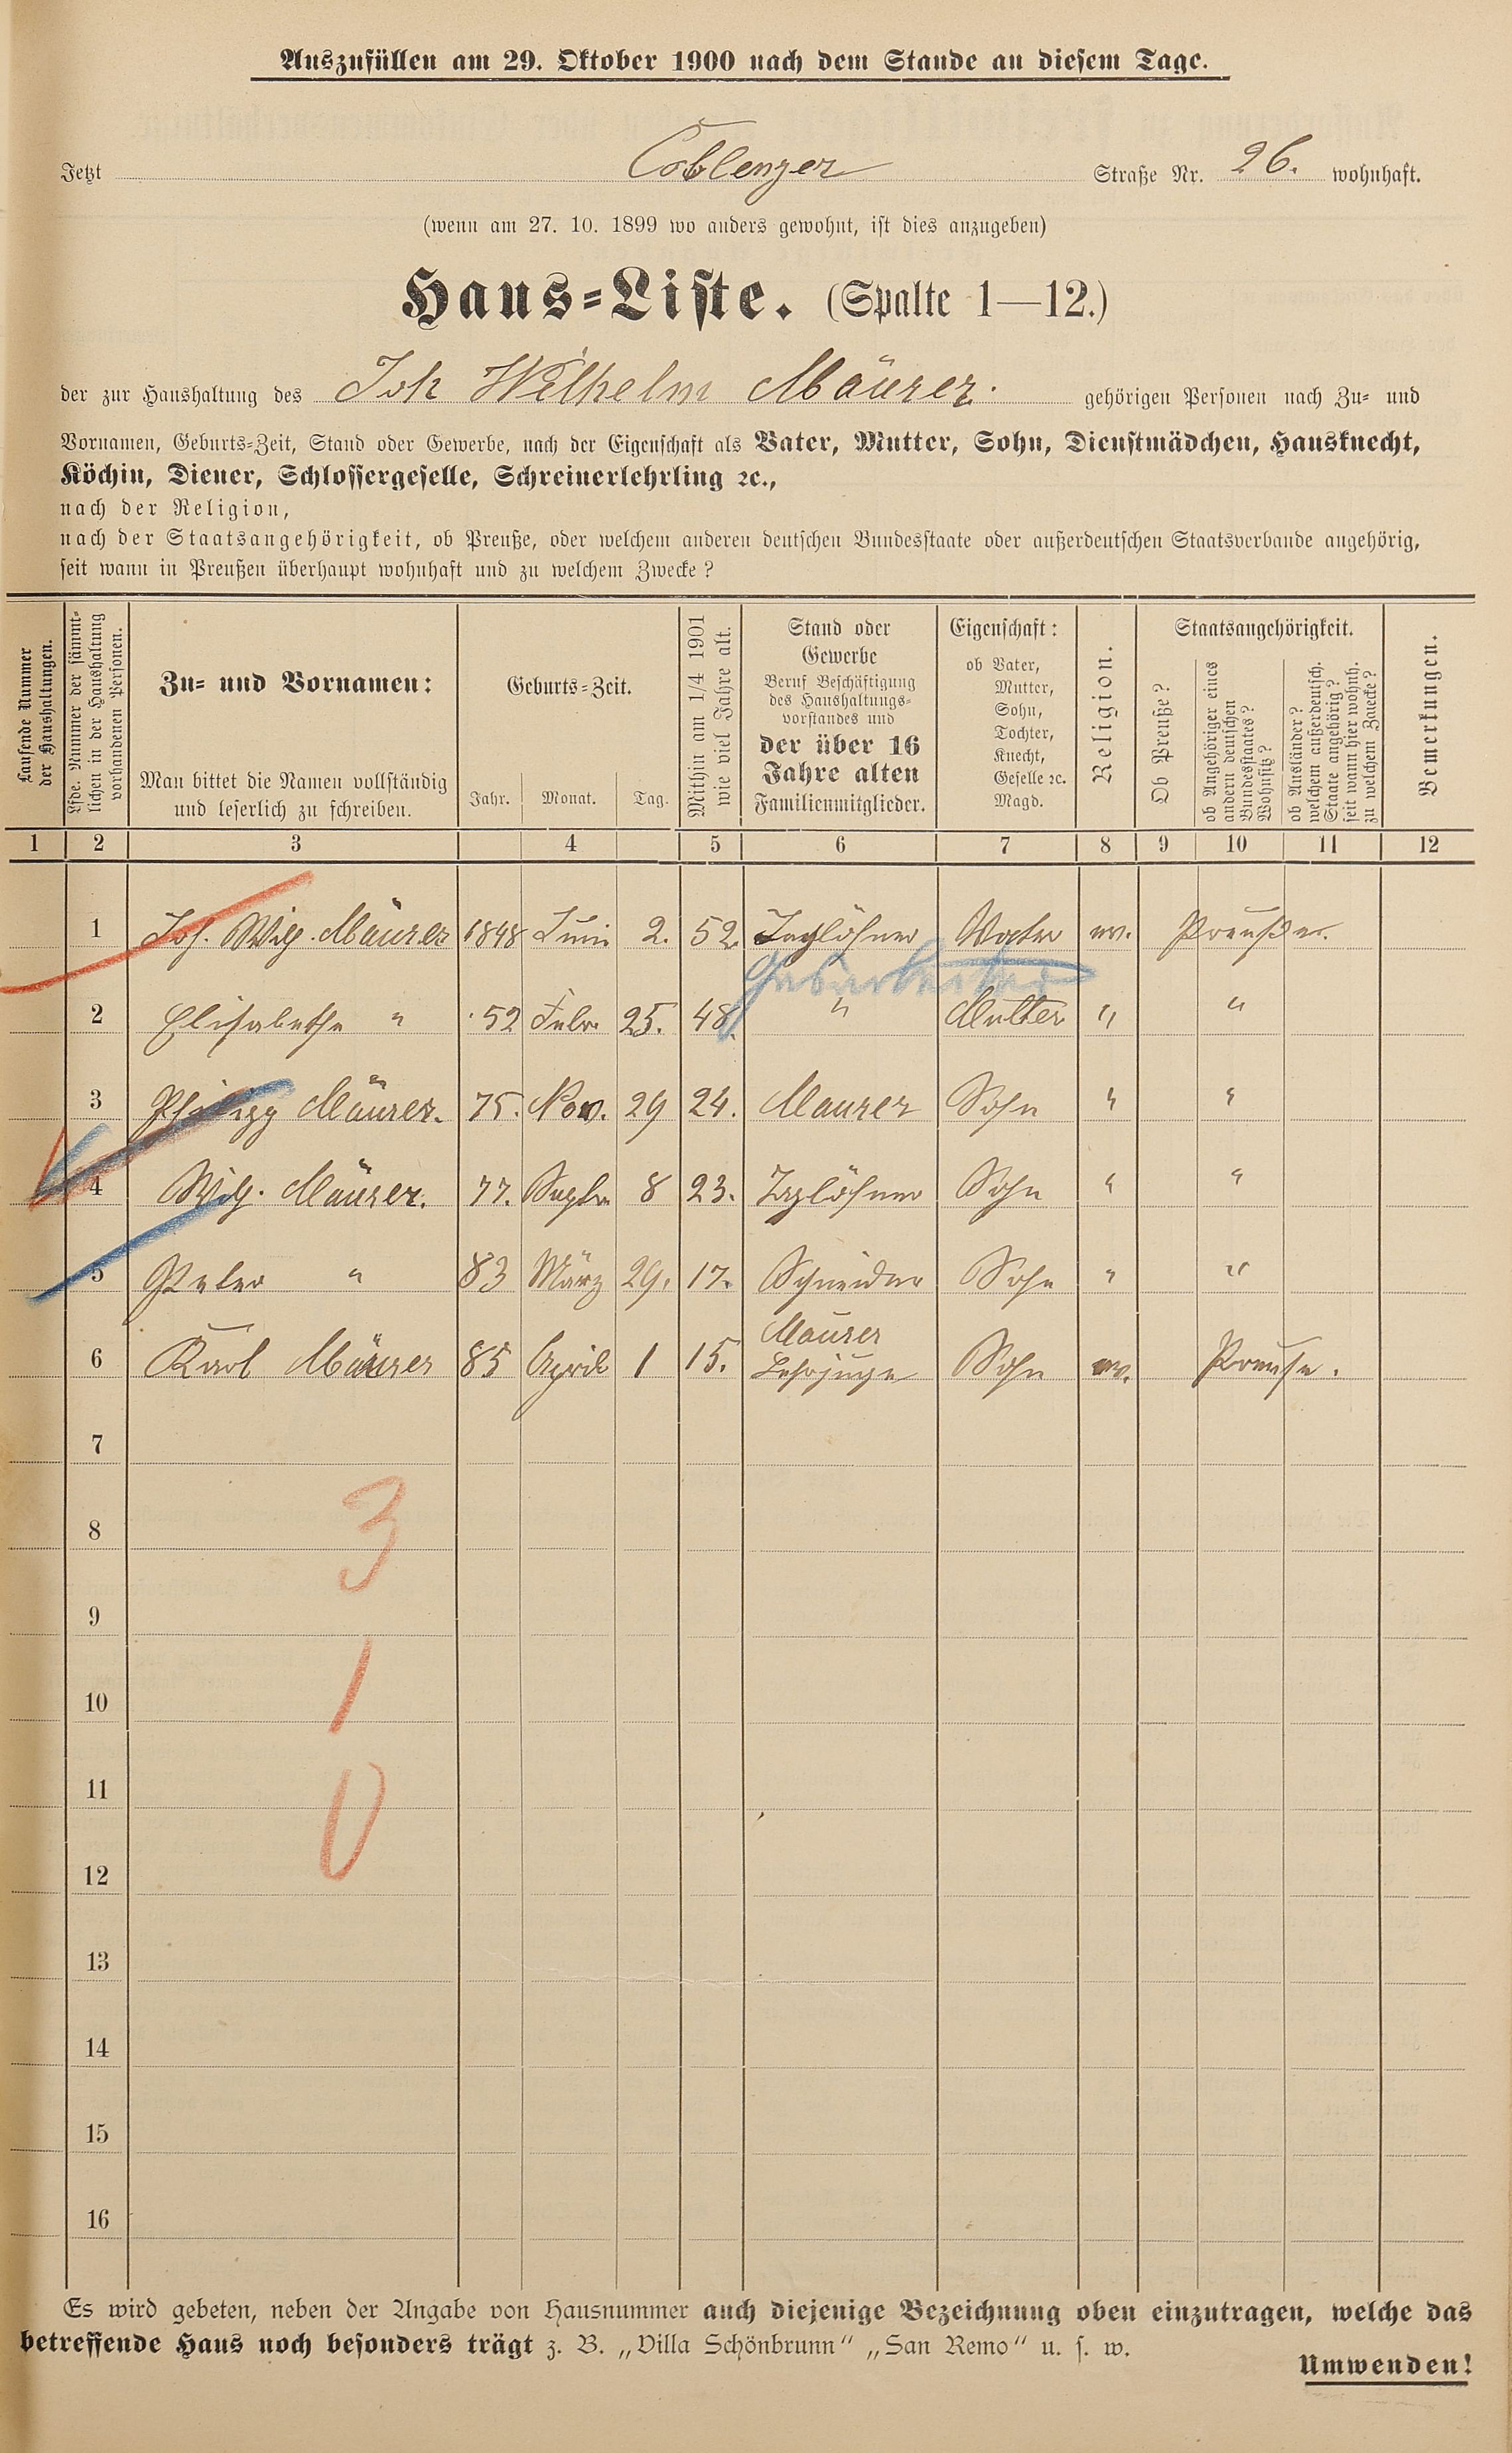 Auszufüllen am 29. Oktober 1900 nach dem Stande an diesem Tage.
Jetzt Coblenzer Straße Nr. 26. wohnhaft.
(wenn am 27. 10. 1899 wo anders gewohnt, ist dies anzugeben)
Haus-Liste. (Spalte 1—12.)
der zur Haushaltung des Joh Wilhelm Mäurer. gehörigen Personen nach Zu- und
Vornamen, Geburts-Zeit, Stand oder Gewerbe, nach der Eigenschaft als Vater, Mutter, Sohn, Dienstmädchen, Hausknecht,
Köchin, Diener, Schlossergeselle, Schreinerlehrling ꝛc.,
nach der Religion,
nach der Staatsangehörigkeit, ob Preuße, oder welchem anderen deutschen Bundesstaate oder außerdeutschen Staatsverbande angehörig,
seit wann in Preußen überhaupt wohnhaft und zu welchem Zwecke?
Laufende Nummer
der Haushaltungen.
Lfde. Nummer der sämmt-
lichen in der Haushaltung
vorhandenen Personen.
Zu- und Vornamen:
Man bittet die Namen vollständig
und leserlich zu schreiben.
Geburts-Zeit.
Jahr. Monat. Tag.
Mithin am 1/4 1901
wie viel Jahre alt.
Stand oder
Gewerbe
Beruf Beschäftigung
des Haushaltungs-
vorstandes und
der über 16
Jahre alten
Familienmitglieder.
Eigenschaft:
ob Vater,
Mutter,
Sohn,
Tochter,
Knecht,
Geselle ꝛc.
Magd.
Religion.
Staatsangehörigkeit.
Ob Preuße?
ob Angehöriger eines
andern deutschen
Bundesstaates?
Wohnsitz?
ob Ausländer?
welchem außerdeutsch.
Staate angehörig?
seit wann hier wohnh.
zu welchem Zwecke?
Bemerkungen.
1 2 3 4 5 6 7 8 9 10 11 12
1 Joh. Wilh. Mäurer 1848 Juni 2. 52. Taglöhner Vater ev. Preußen.
Gasarbeiter
2 Elisabethe " 52 Febr. 25. 48. " Mutter " "
3 Philipp Mäurer. 75. Nov. 29 24. Maurer Sohn " "
4 Wilh. Mäurer. 77. Septbr 8 23. Taglöhner Sohn " "
5 Peter " 83 März 29. 17. Schneider Sohn " "
6 Karl Mäurer 85 April 1 15. Maurer
Lehrjunge Sohn ev. Preuße.
7
8 3
9
10 1
11
12 0
13
14
15
16
Es wird gebeten, neben der Angabe von Hausnummer auch diejenige Bezeichnung oben einzutragen, welche das
betreffende Haus noch besonders trägt z. B. „Villa Schönbrunn“ „San Remo“ u. s. w.
Umwenden!